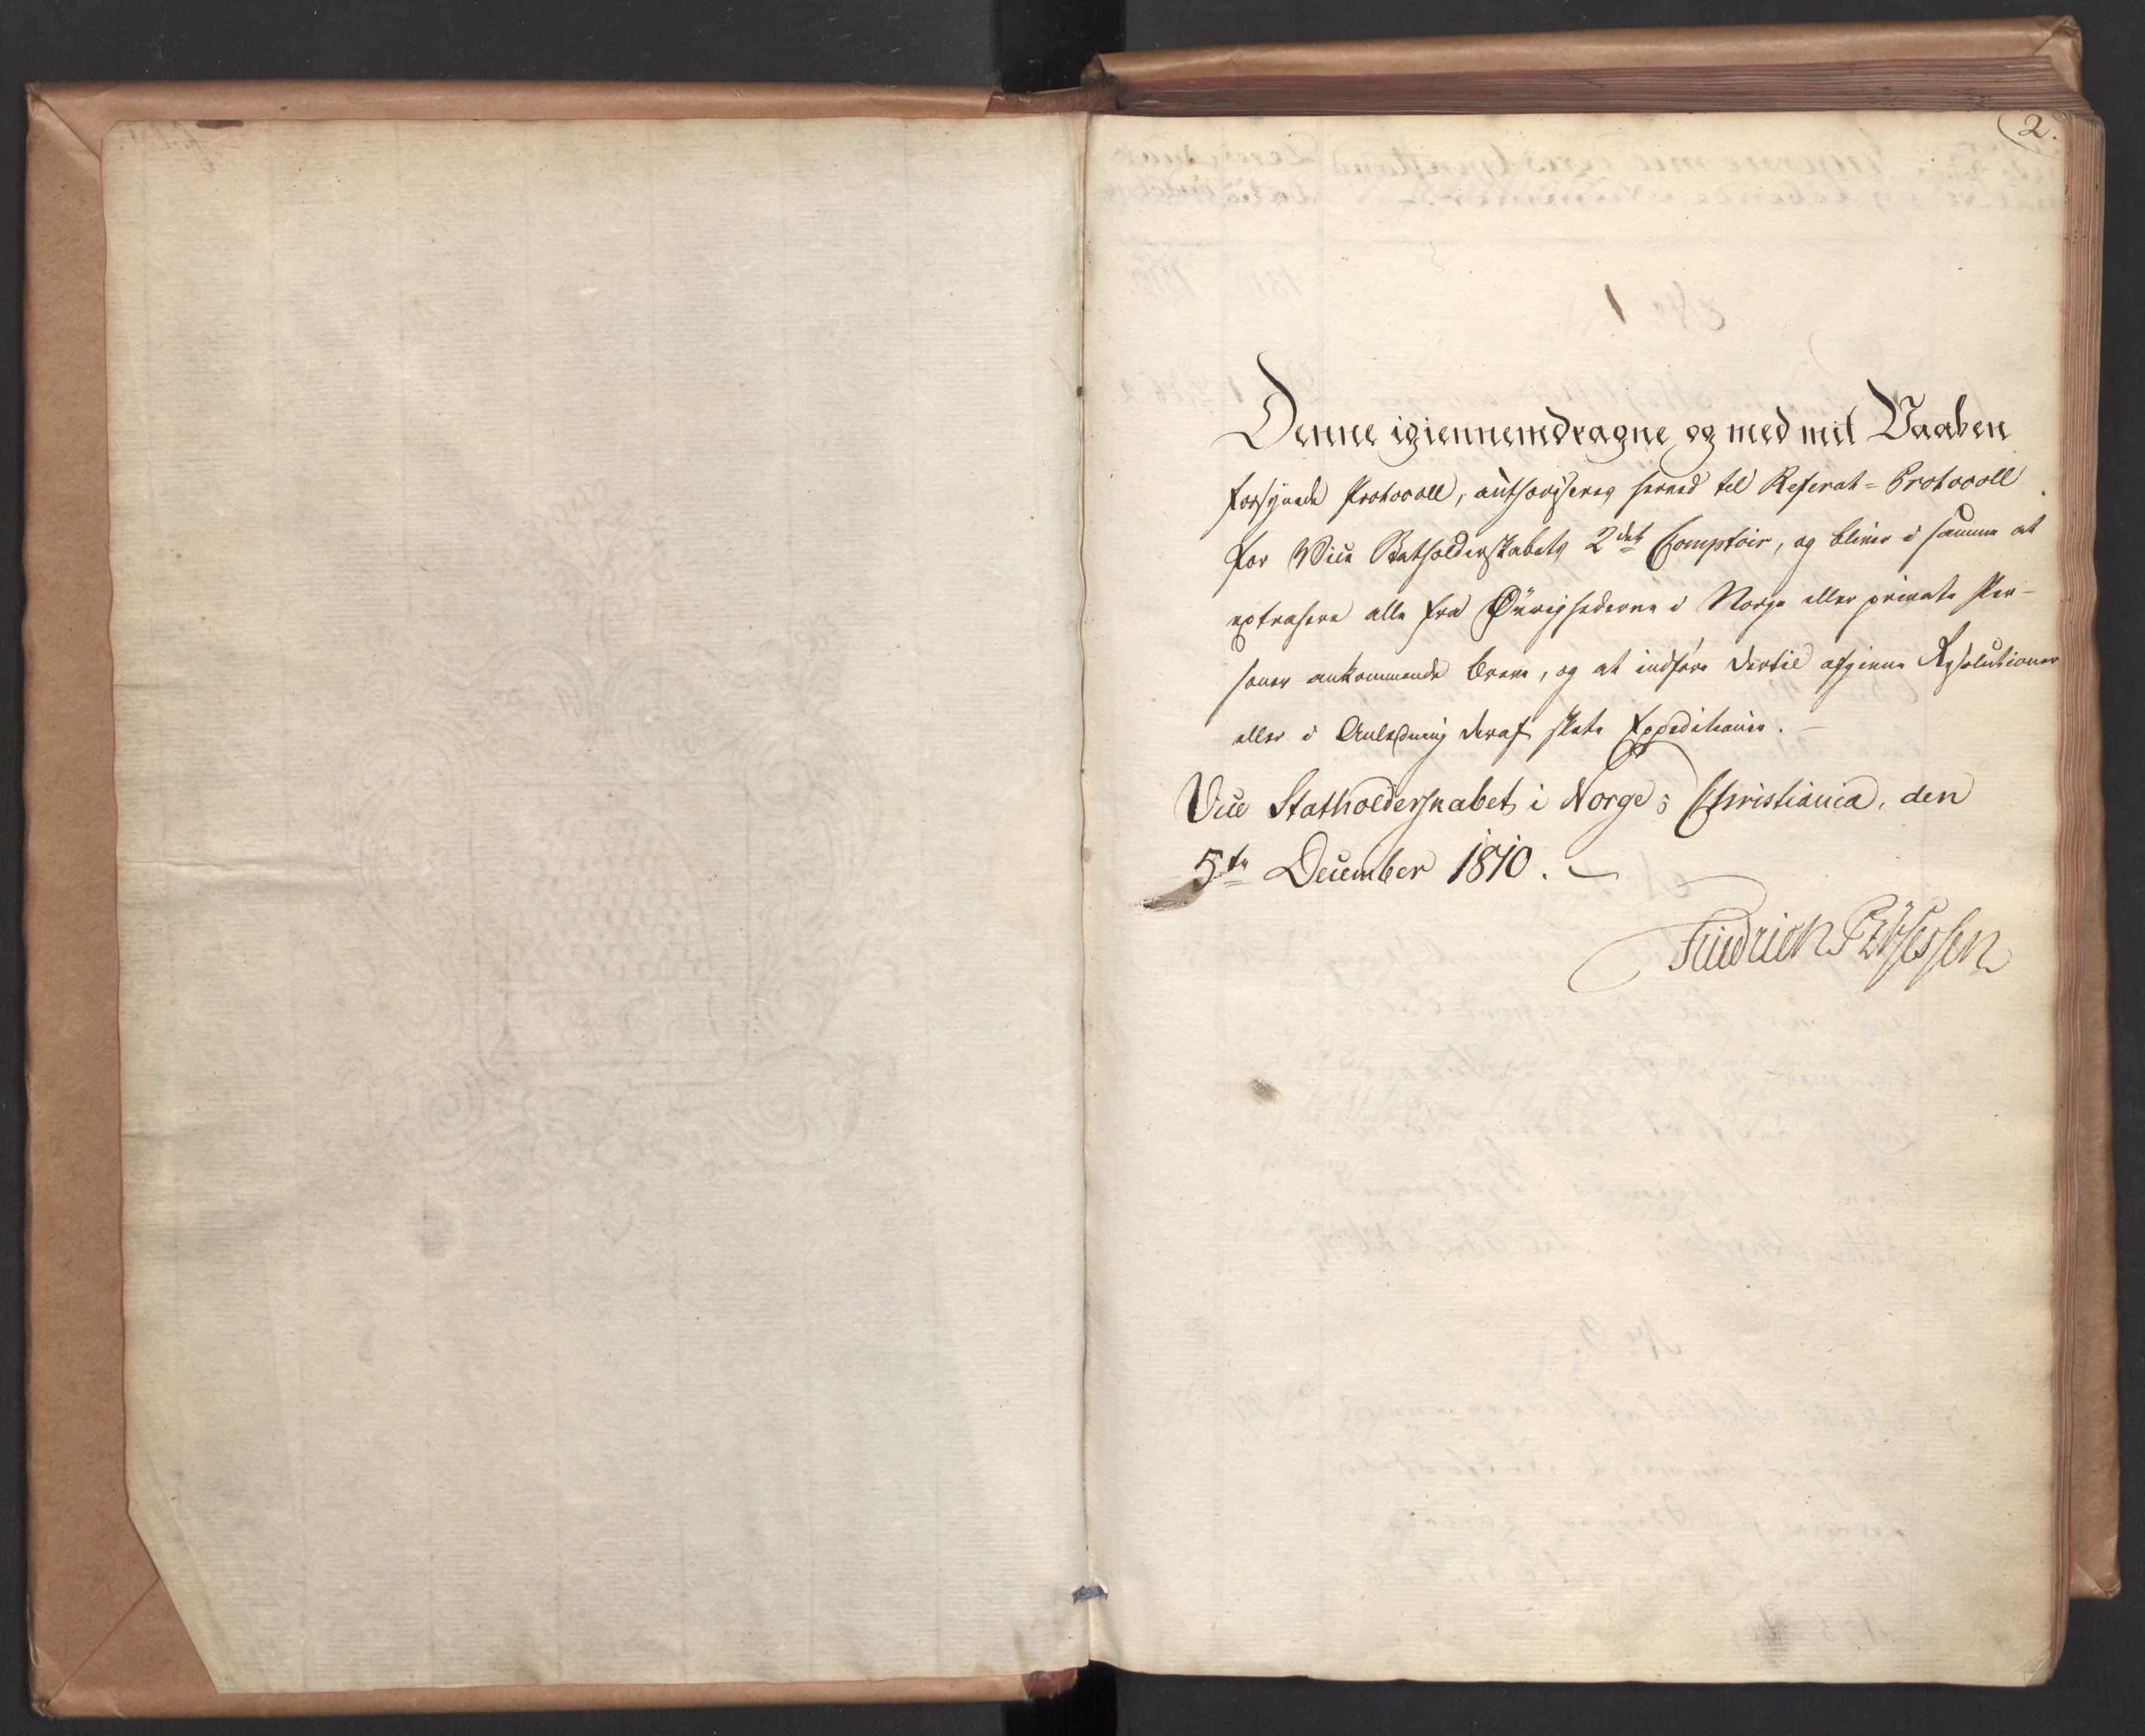 2.
Denne igiennemdragne og med mit Vaaben
forsÿnede Protocoll, authoriseres herved til Referat=Protocoll
for Vice Statholderskabets 2det Comptoir, og bliver i samme at
extrahere alle fra Øvrighederne i Norge eller private Per-
soner ankommende Breve, og at indføre dertil afgivne Resolutioner
eller i Anledning deraf skete Expeditioner. –
Vice Statholderskabet i Norge; Christiania, den
5te December 1810. –
Friedrich PzHessen